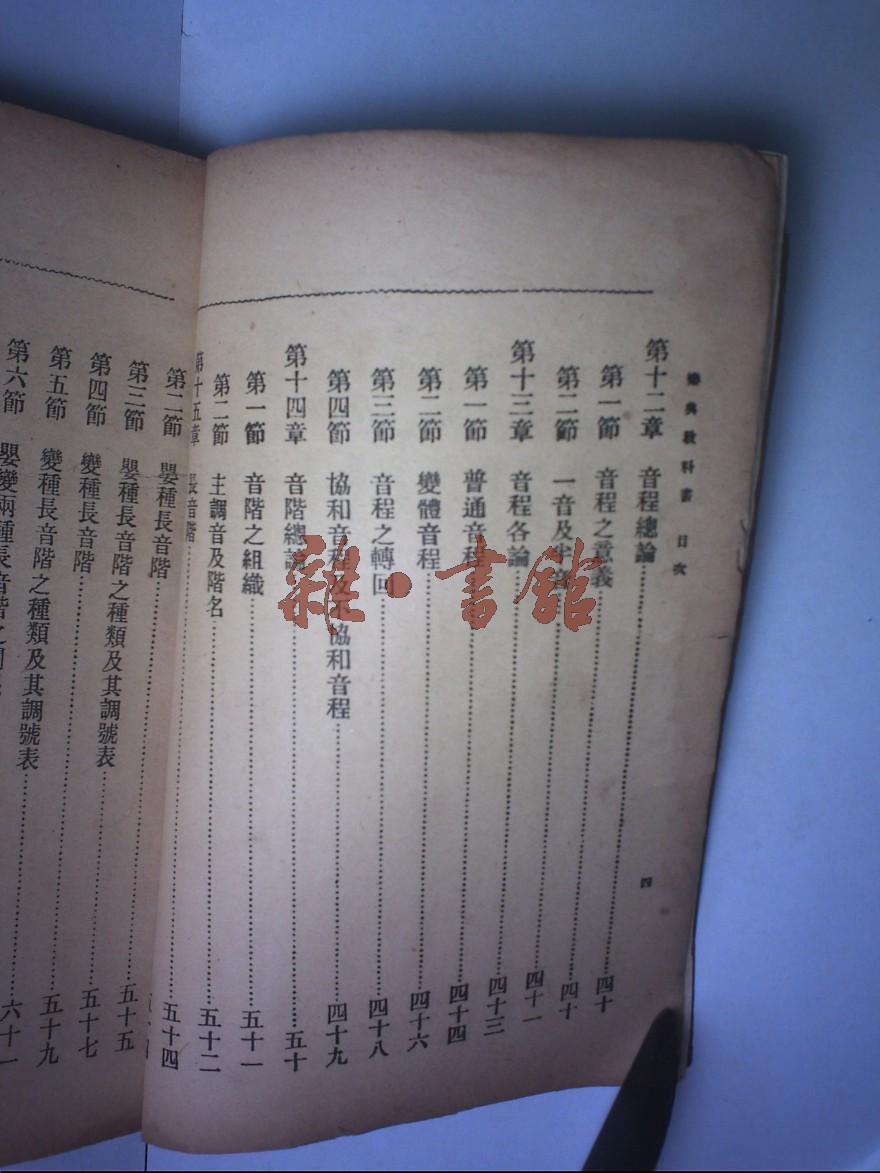 樂典教科書 目次
四
第十二章 音程總論……四十
第一節 音程之意義……四十
第二節 一音及半音……四十一
第十三章 音程各論……四十三
第一節 普通音程……四十四
第二節 變體音程……四十六
第三節 音程之轉回……四十八
第四節 協和音程及不協和音程……四十九
第十四章 音階總論……五十
第一節 音階之組織……五十一
第二節 主調音及階名……五十二
第十五章 長音階……五十四
第二節 嬰種長音階……
第三節 嬰種長音階之種類及其調號表……五十五
第四節 變種長音階……五十七
第五節 變種長音階之種類及其調號表……五十九
第六節 嬰變兩種長音階之……六十一
雜·書館